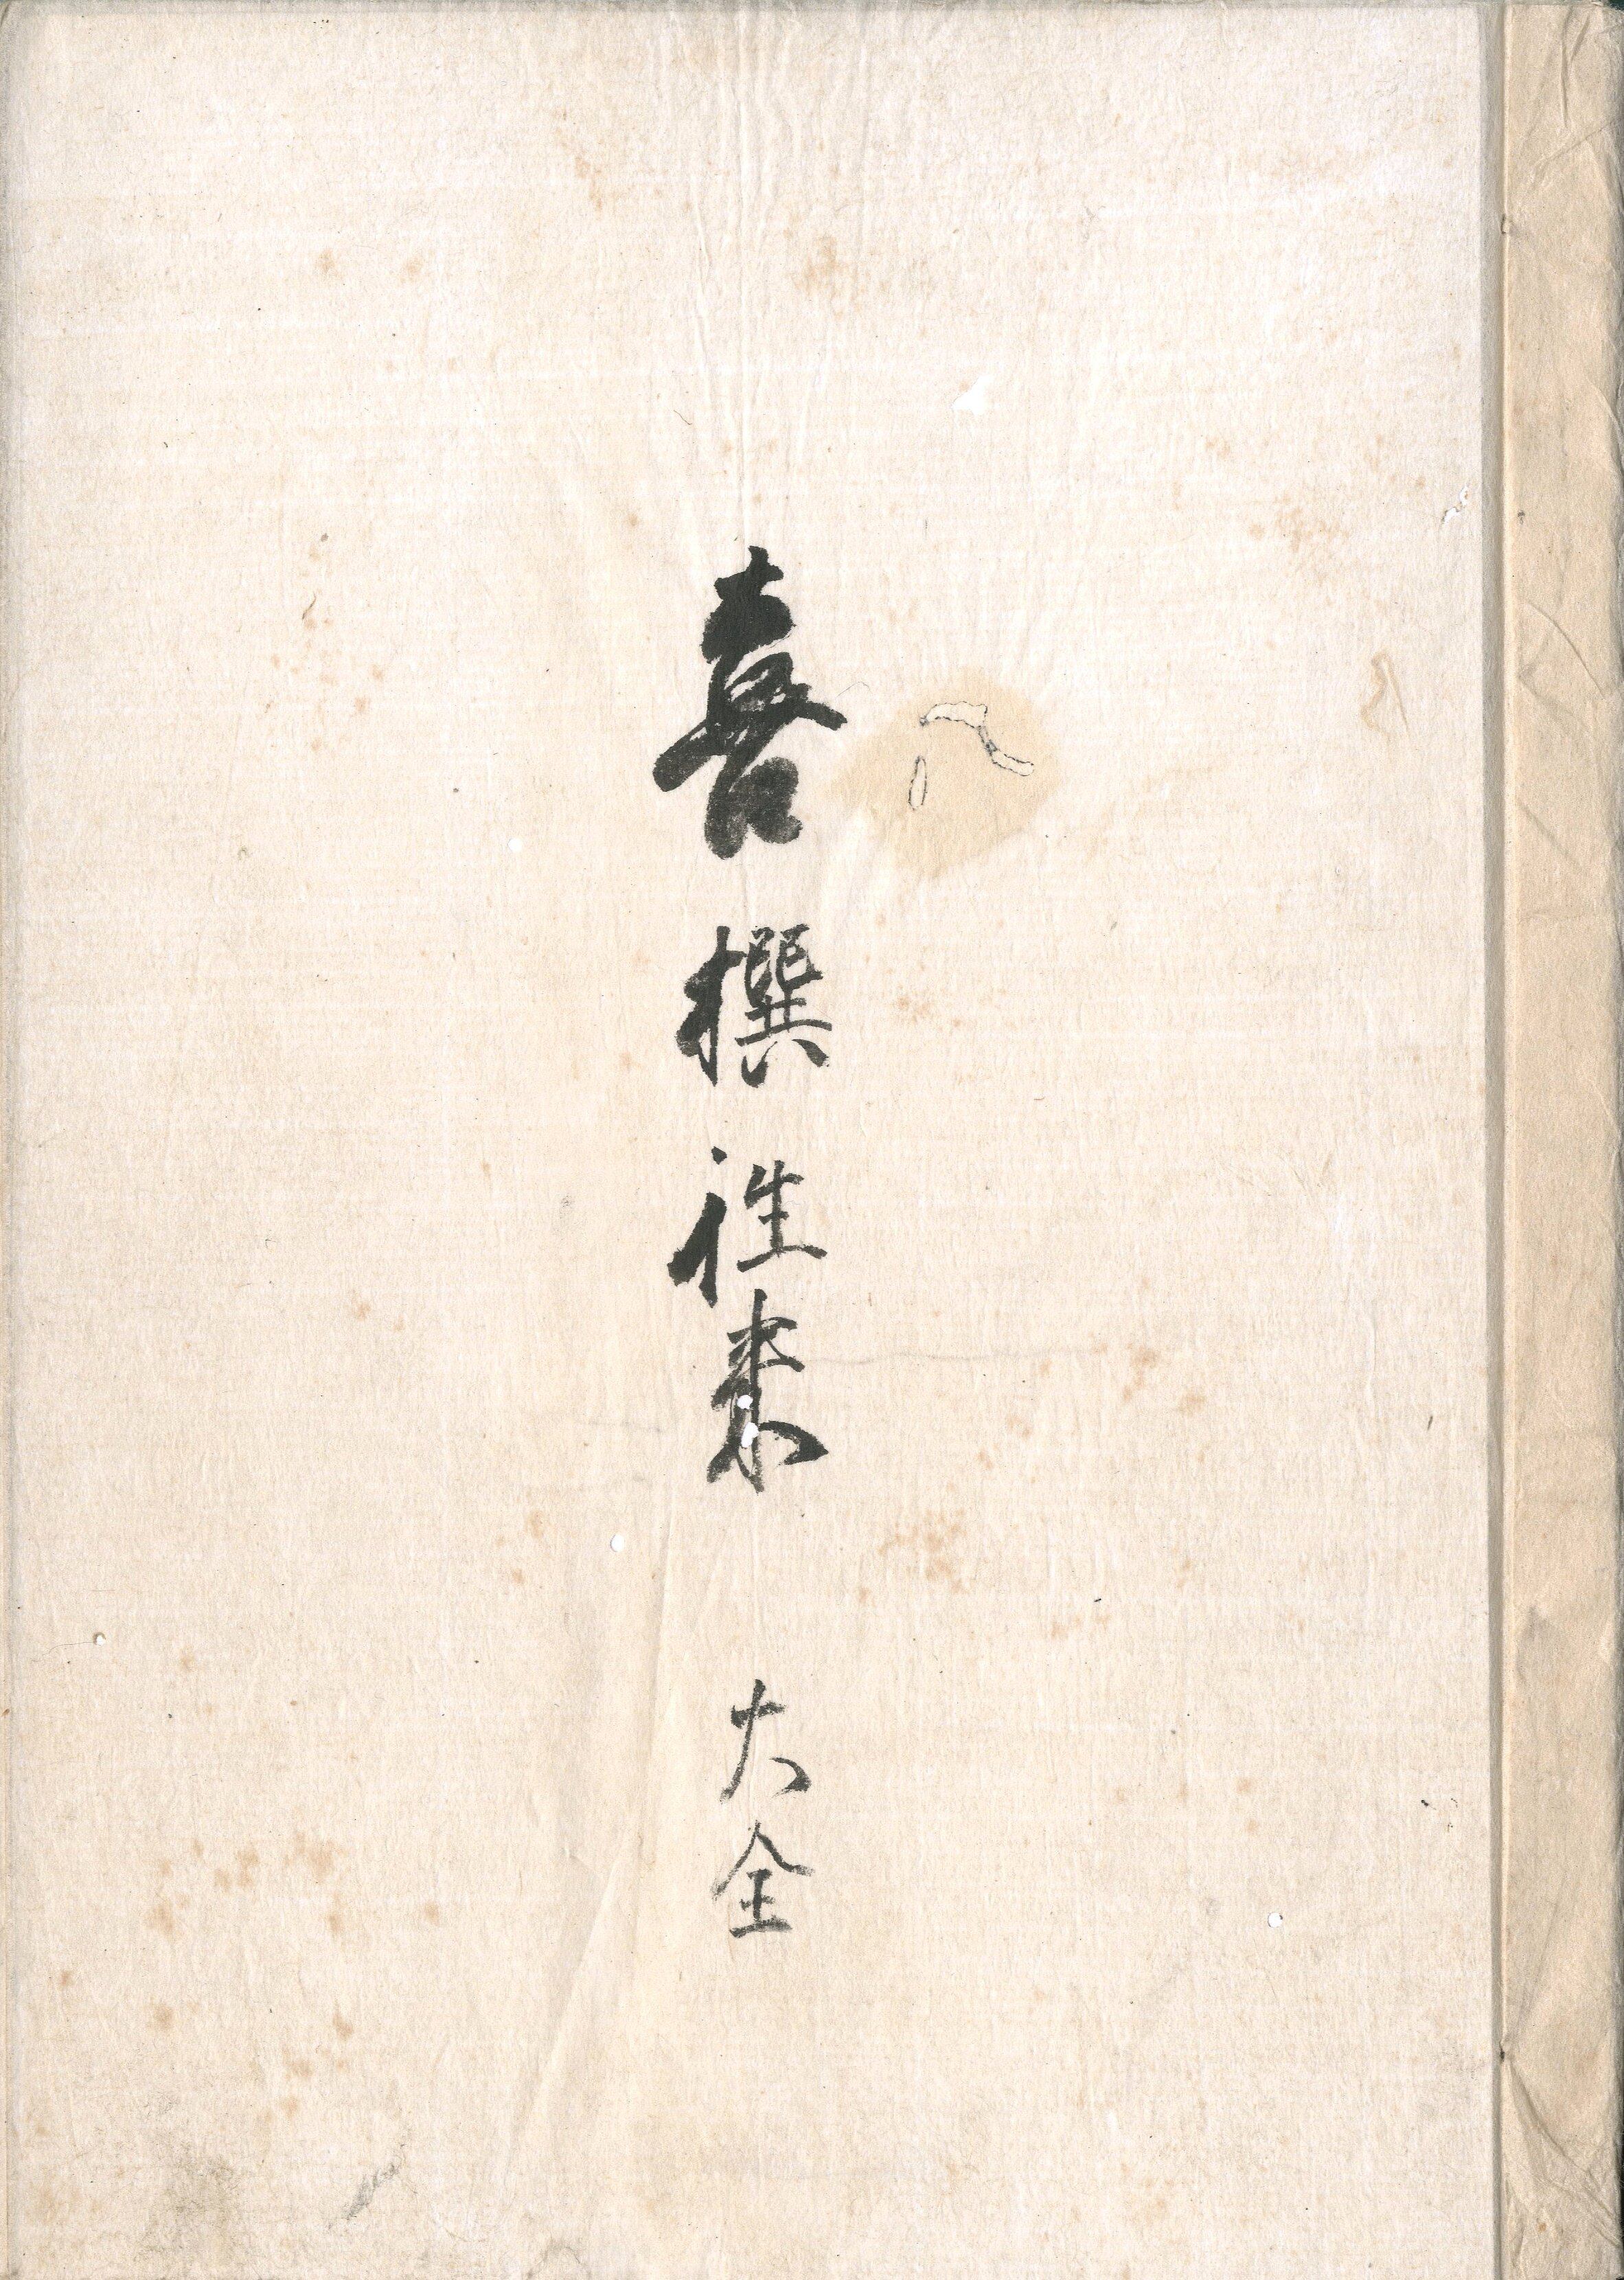 喜撰往来 大全